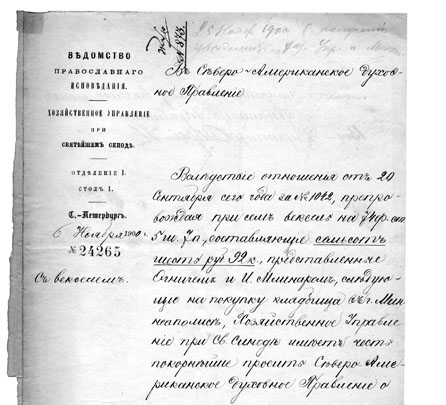 ВѢДОМСТВО
ПРАВОСЛАВНАГО
ИСПОВѢДАНІЯ.
ХОЗЯЙСТВЕННОЕ УПРАВЛЕНІЕ
ПРИ
СВЯТѢЙШЕМЪ СИНОДѢ.
ОТДѢЛЕНІЕ I.
СТОЛЪ I.
С.-Петербургъ.
6 Ноября 1900 г.
№ 24265
Съ векселемъ.
№ 843.
Въ Сѣверо-Американское Духов-
ное Правленіе
Вслѣдствіе отношенія отъ 20
Сентября сего года за № 1042, препро-
вождая при семъ вексель на
5 ш. 7 п., составляющіе семьсотъ
шесть руб 92 к., представленные
Огничемъ и И. Млинаремъ, слѣдую-
щіе на покупку кладбища въ г. Мин-
неаполисѣ, Хозяйственное Управле-
ніе при Св. Синодѣ имѣетъ честь
покорнѣйше просить Сѣверо-Аме-
риканское Духовное Правленіе о